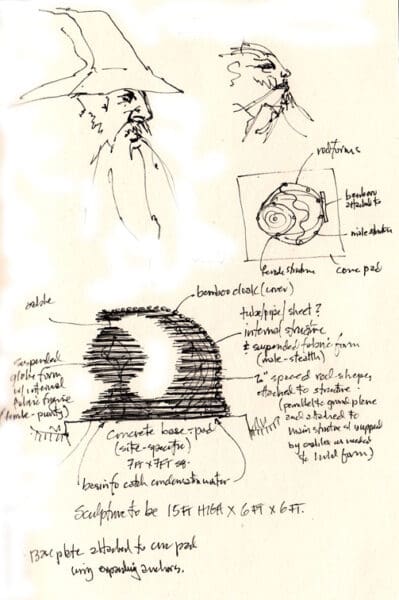 rod forms
bamboo
attached to
male shadow
female shadow
conc pad
cable
bamboo cloak (cover)
tube/pipe/sheet?
internal structure
± suspended fabric form
(male-stealth)
suspended
globe form
w/ internal
fabric
(female-purity)
2" spaced rod shapes,
attached to structure -
(parallel to ground plane
and attached to
main structure & wrapped
by cables as needed
to hold form)
Concrete base-pad
(site-specific)
7ft x 7ft sq.
basin to catch condensation water
Sculpture to be 15 FT HIGH x 6 FT x 6 FT.
Base plate attached to conc pad
using expanding anchors.